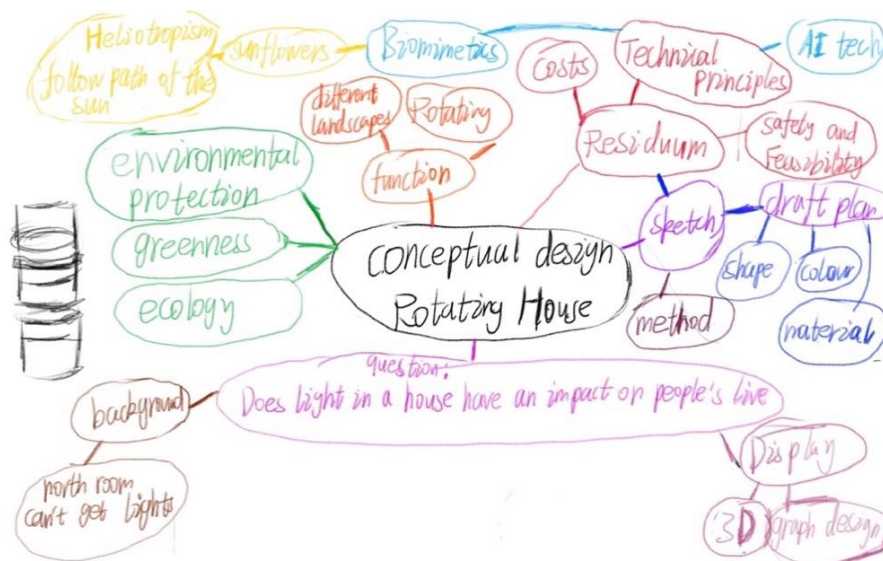 Heliotropism
follow path of the
sun
sunflowers
Biomimetics
Technical
principles
AI tech
costs
different
landscapes
Rotating
function
Residuum
safety and
Feasibility
environmental
protection
greenness
ecology
sketch
draft plan
shape
colour
material
method
conceptual design
Rotating House
question:
Does light in a house have an impact on people's live
background
north room
can't get lights
Display
3D
graph design